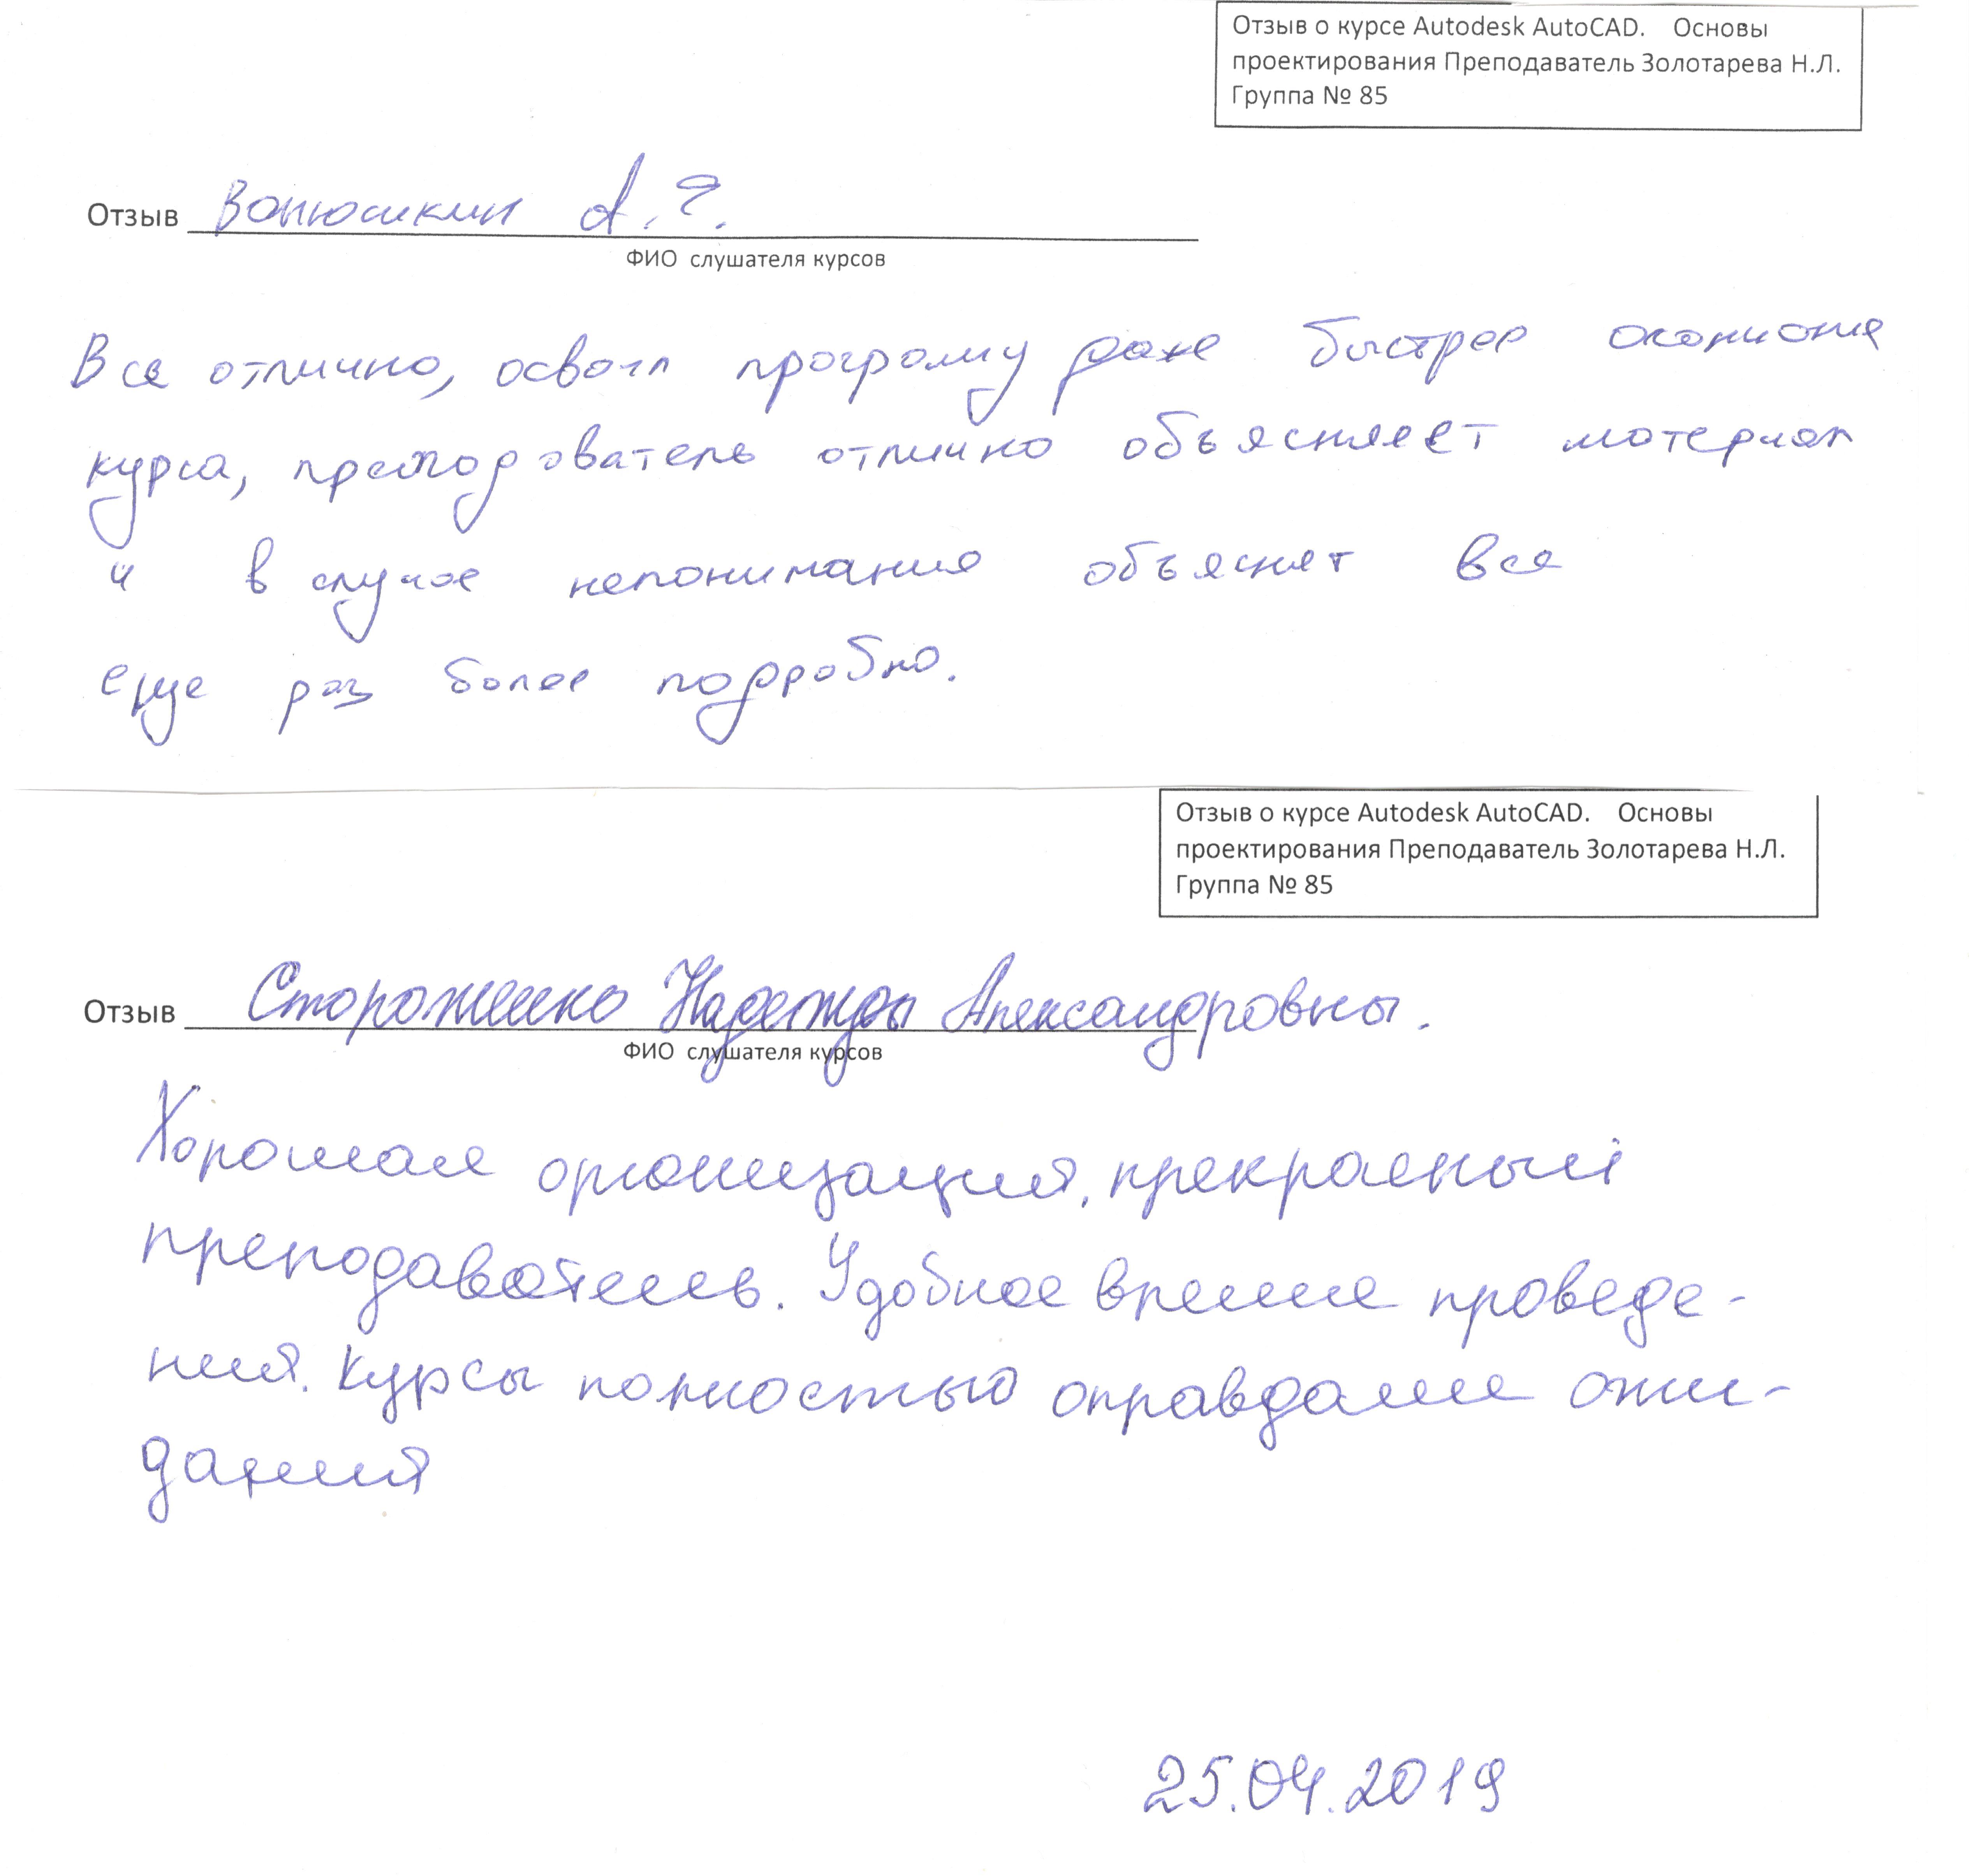 Отзыв о курсе Autodesk AutoCAD. Основы
проектирования Преподаватель Золотарева Н.Л.
Группа № 85
Отзыв Ванюшкин А.
ФИО слушателя курсов
Все отлично, освоил програму даже быстрее окончания
курса, преподователь отлично объясняет материал
и в случае непонимания объяснят все
еще раз более подробно.
Отзыв о курсе Autodesk AutoCAD. Основы
проектирования Преподаватель Золотарева Н.Л.
Группа № 85
Отзыв Стороженко Надежды Александровны.
ФИО слушателя курсов
Хорошая организация, прекрасный
преподаватель. Удобное время проведе-
ния. Курсы полностью оправдали ожи-
дания
25.04.2019